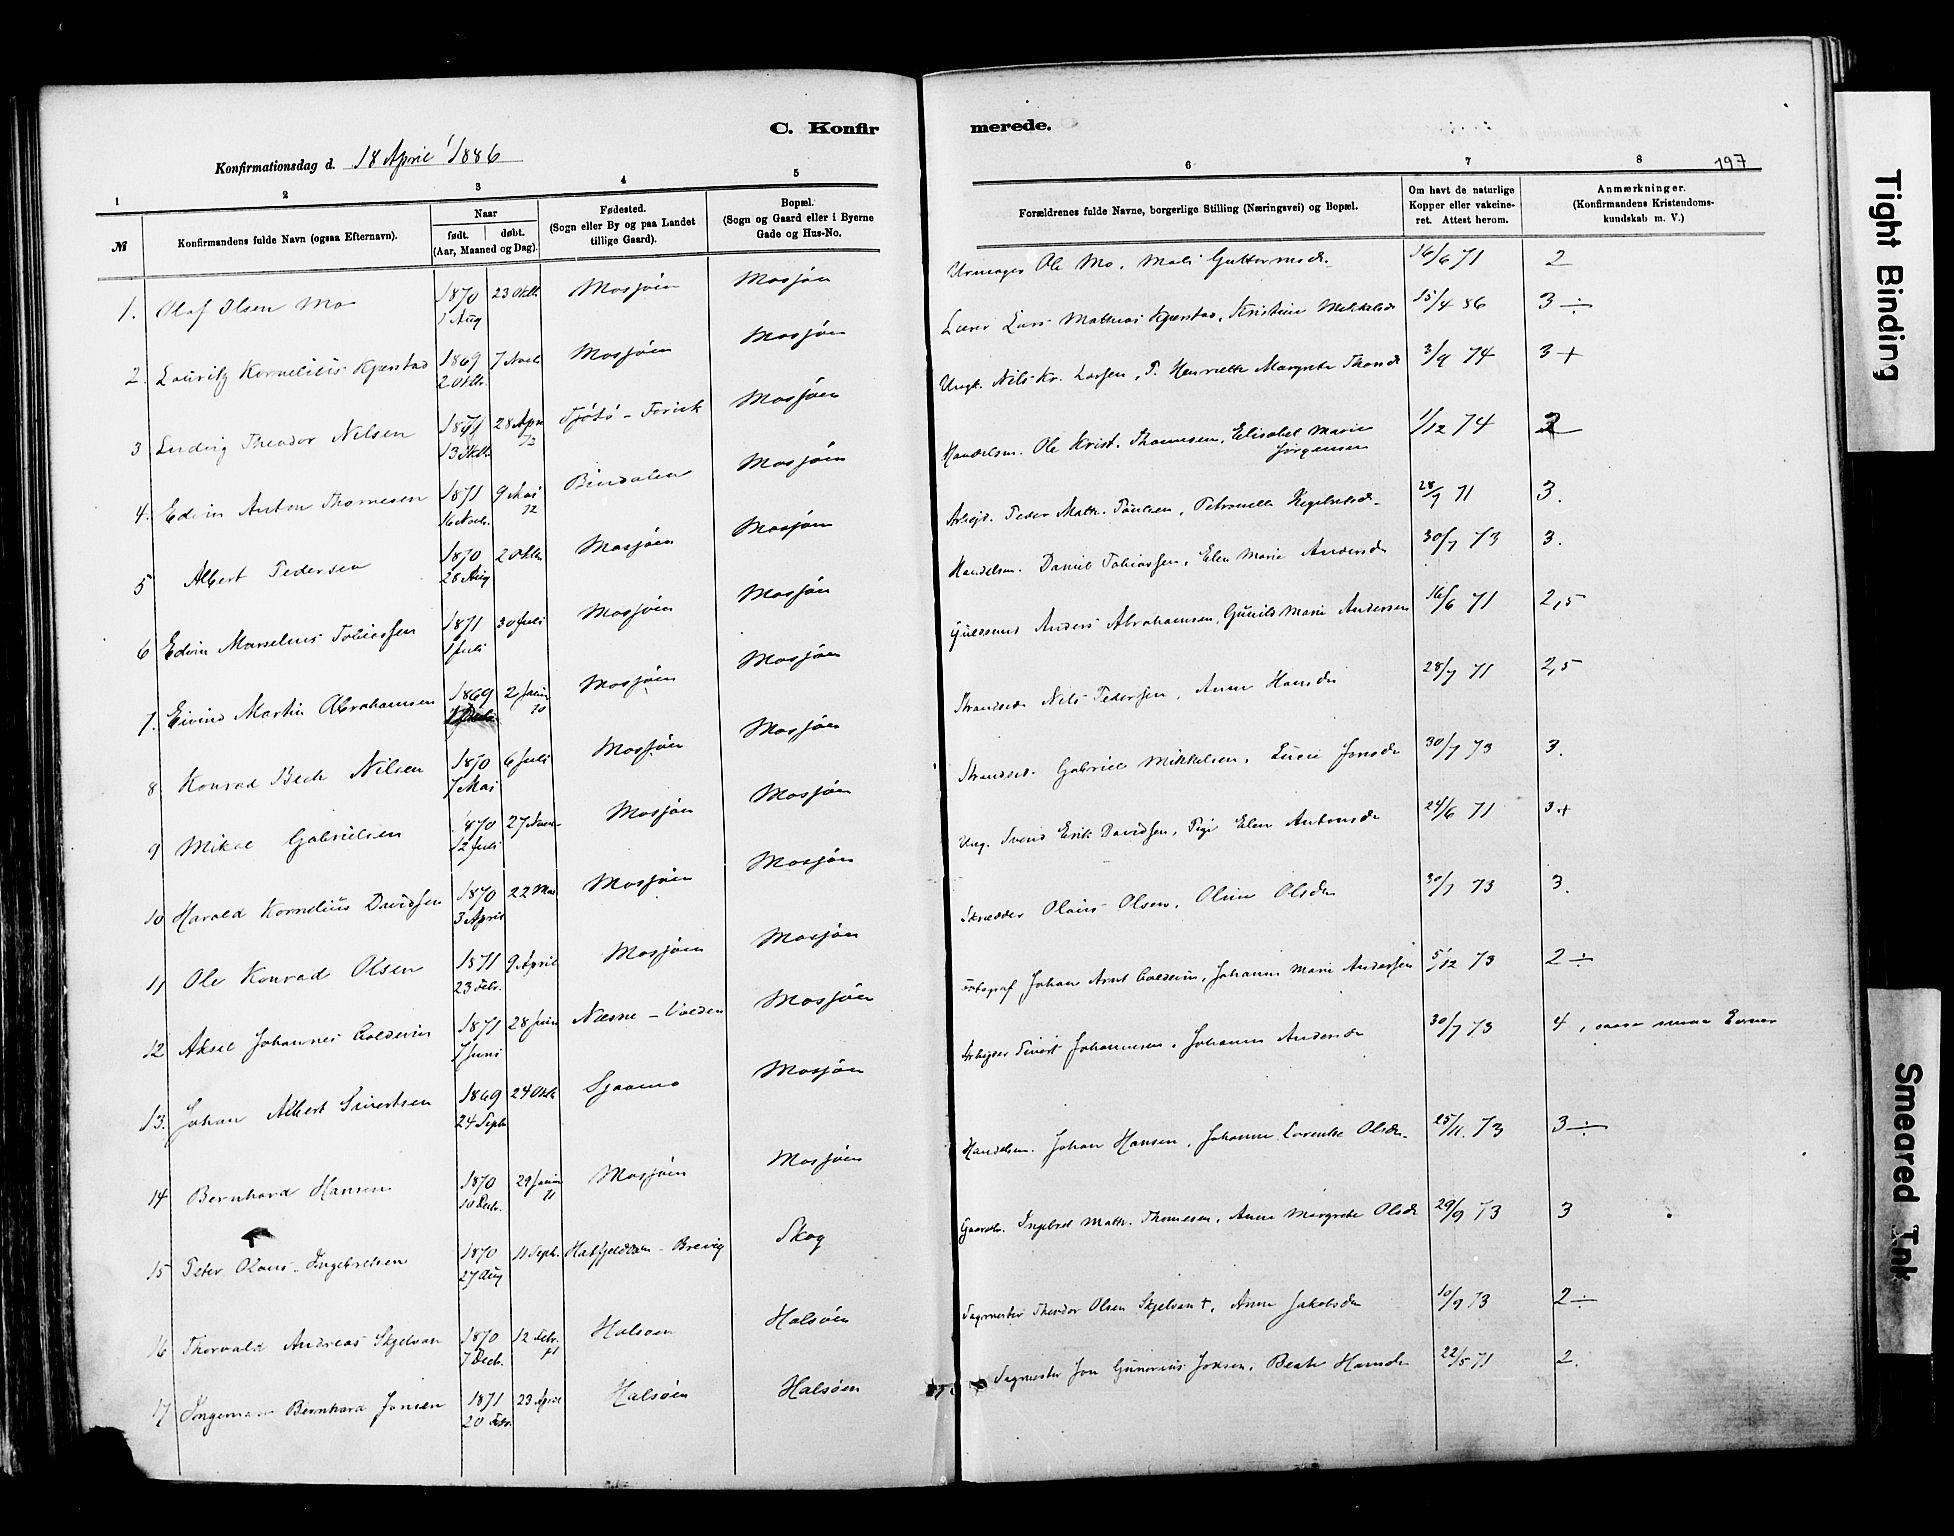 C. Konfirmerede.
Konfirmationsdag d. 18 April 1886
197
1 2 3 4 5 6 7 8
№
Konfirmandens fulde Navn (ogsaa Efternavn).
Naar
født. døbt.
(Aar, Maaned og Dag).
Fødested.
(Sogn eller By og paa Landet
tillige Gaard).
Bopæl.
(Sogn og Gaard eller i Byerne
Gade og Hus-No.
Forældrenes fulde Navne, borgerlige Stilling (Næringsvei) og Bopæl.
Om havt de naturlige
Kopper eller vakcine-
ret. Attest herom.
Anmærkninger.
(Konfirmandens Kristendoms-
kundskab m. V.)
1. Olaf Olsen Mo 1870 1 Aug 23 Oktb. Mosjøen Mosjøen Urmager Ole Mo, Mali Guttormsdr. 16/6 71 2
2. Lauritz Kornelius Kjærstad 1869 2 Oktbr. 7 Novb Mosjøen Mosjøen Lærer Lars Mathias Kjærstad, Kristine Mikkelsdr 15/4 86 3 ÷
3 Ludvig Theodor Nilsen 1871 13 Oktb. 28 Apr 72 Tjøtø - Mosjøen Nils Kr. Larsen, Henriette Margrete 3/9 74 3 +
4. Edvin Anton Thomesen 1871 16 Novbr. 9 Mai 72 Bindalen Mosjøen Handelsm. Ole Krist. Thomesen, Elisabet Marie Jørgensen 1/12 74 2
5 Albert Pedersen 1870 28 Aug 2 Oktbr Mosjøen Mosjøen Arbejd. Peder Math. Poulsen, Petronelle 28/7 71 3.
6 Edvin Marselius Tobiassen 1871 1 Juli 30 Juli Mosjøen Mosjøen Handelsm. Daniel Tobiassen, Elen Marie Andersdr 30/7 73 3.
7. Eivind Martin Abrahamsen 1869 2 Januar 70 Mosjøen Mosjøen Guldsmed Anders Abrahamsen, Gunild Marie Andersen 16/6 71 2,5
8 Konrad Bech Nilsen 1870 7 Mai 6 Juli Mosjøen Mosjøen Strandsid. Nils Pedersen, Anne Hansdr 28/7 71 2,5
9 Mikal Gabrielsen 1870 12 Juli 27 Novbr Mosjøen Mosjøen Strandsid. Gabriel Mikkelsen, Lucie Jonsdr 30/7 73 3.
10 Harald Kornelius Davidsen 1870 3 April 22 Mai Mosjøen Mosjøen Ung. Svend Erik Davidsen, Pige Elen Antonsdr 24/6 71 3 +
11 Ole Konrad Olsen 1871 23 Febr. 9 April Mosjøen Mosjøen Skrædder Olaus Olsen, Oline Olsdr 30/7 73 3.
12 Aksel Johannes Coldevin 1871 1 Juni 28 Juni Næsne - Mosjøen Fotograf Johan Arnt Coldevin, Johanne Marie Andersen 5/12 73 2 ÷
13. Johan Albert Sivertsen 1869 24 Septb. 24 Oktb Mosjøen Arbejder Sivert Johannesen, Johanne Andersdr 30/7 73 4,
14 Bernhard Hansen 1870 10 Decbr. 29 Januar 71 Mosjøen Mosjøen Handelsm. Johan Hansen, Johanne Lorentse Olsdr. 25/11. 73 3 ÷
15 Peter Olaus Ingebretsen 1870 27 Aug 11 Septb. Hatfjelddalen - Brevig Skog Gaardb. Ingebret Math. Thomesen, Anne Margrete Olsdr 29/9 73 3
16 Thorvald Andreas Skjelvan 1870 7 Decbr. 12 Febr. 71 Halsøen Halsøen Sagmester Theodor Olsen Skjelvan †, Anne Jakobsdr 10/9 73 2 ÷
17 Ingemar Bernhard Jonsen 1871 20 Febr. 23 April Halsøen Halsøen Sagmester Jon Gunerius Jonsen, Beate Hansdr 22/5 71 2.
Tight Binding
Smeared Ink